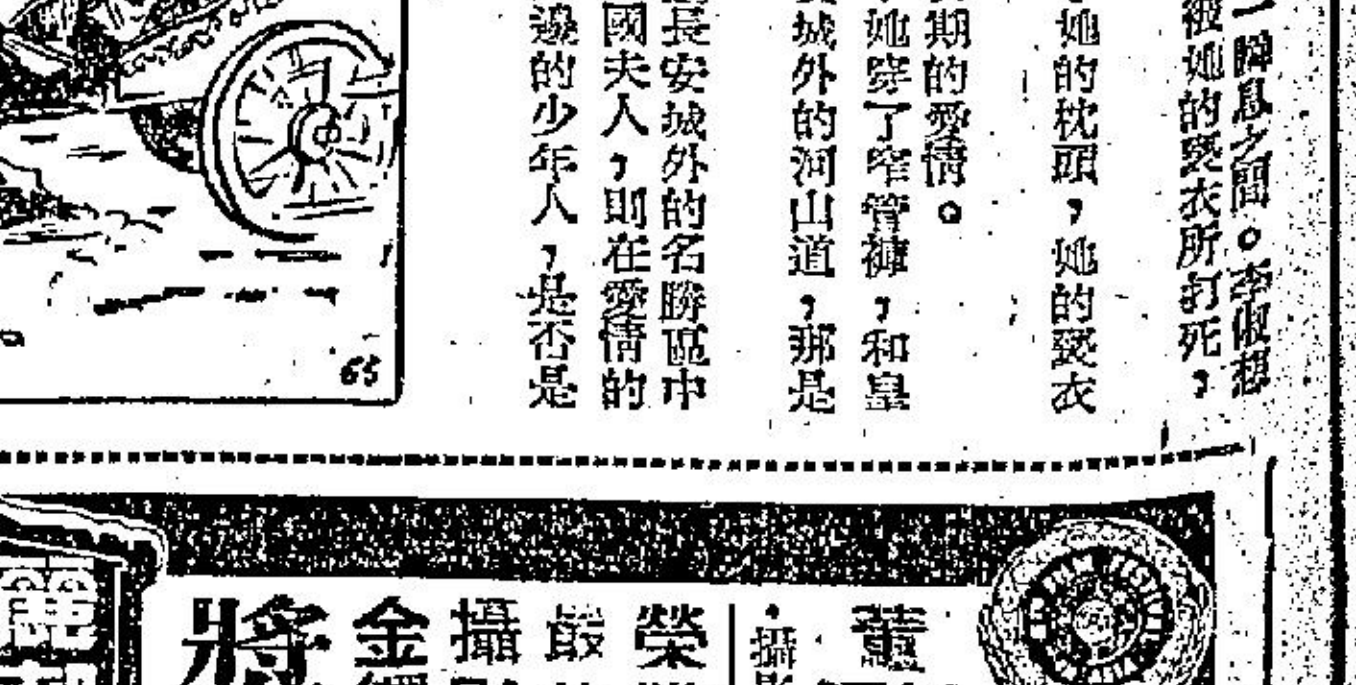 一瞬息之間。李俶想
被她的裘衣所打死，
她的枕頭，她的裘衣
期的愛情。
她穿了窄管褲，和皇
城外的河山道，那是
長安城外的名勝區中
國夫人，則在愛情的
邊的少年人，是否是
65
董
·攝影
榮
最
攝
金
將